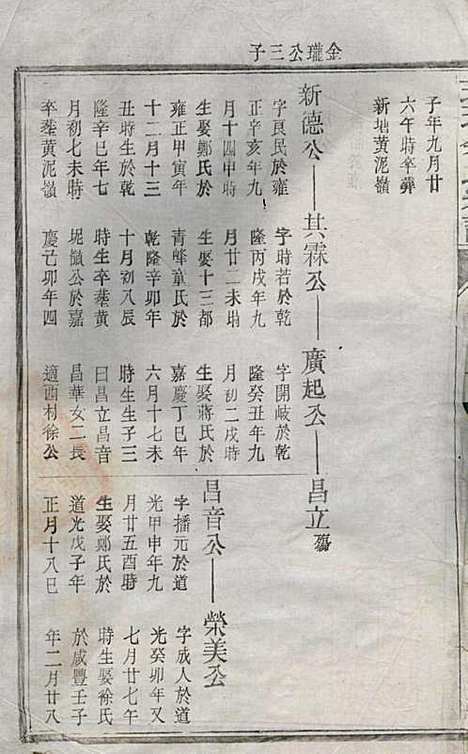 金瓏公三子
子年九月廿
六午時卒葬
新塘黄泥嶺
新德公——其霖公——廣起公——昌立殤
字良民於雍
正辛亥年九
月十四申時
生娶鄭氏於
雍正甲寅年
十二月十三
丑時生於乾
隆辛巳年七
月初七未時
卒葬黄泥嶺
字時若於乾
隆丙戌年九
月廿二未時
生娶十三都
青峰童氏於
乾隆辛卯年
十月初八辰
時生卒葬黄
坭嶺公於嘉
慶己卯年四
字開岐於乾
隆癸丑年九
月初二戌時
生娶蔣氏於
嘉慶丁巳年
六月十七未
時生生子三
曰昌立昌音
昌華女二長
適西村徐公
昌音公——榮美公
字播元於道
光甲申年九
月廿五酉時
生娶鄭氏於
道光戊子年
正月十八巳
字成人於道
光癸卯年又
七月廿七午
時生娶徐氏
於咸豐壬子
年二月廿八